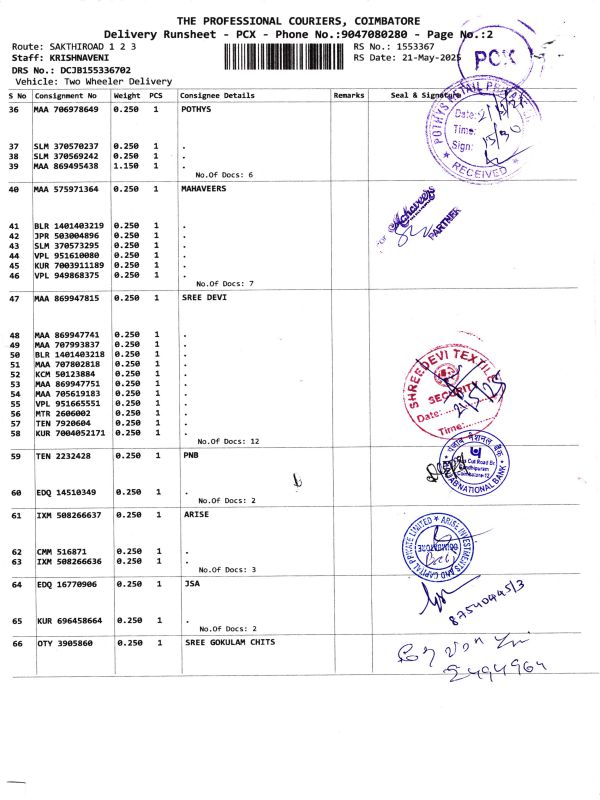 THE PROFESSIONAL COURIERS, COIMBATORE
Delivery Runsheet - PCX - Phone No.:9047080280 - Page No.:2
Route: SAKTHIROAD 1 2 3
Staff: KRISHNAVENI
DRS No.: DCJB155336702
Vehicle: Two Wheeler Delivery
RS No.: 1553367
RS Date: 21-May-2025
PCX
S No Consignment No Weight PCS Consignee Details Remarks Seal & Signature
36 MAA 706978649 0.250 1 POTHYS
POTHYS RETAIL
Date: 21/5/25
Time: 15/30
Sign:
RECEIVED
37 SLM 370570237 0.250 1 .
38 SLM 370569242 0.250 1 .
39 MAA 869495438 1.150 1 .
No.Of Docs: 6
40 MAA 575971364 0.250 1 MAHAVEERS
Mahaveers
PARTNER
41 BLR 1401403219 0.250 1 .
42 JPR 503004896 0.250 1 .
43 SLM 370573295 0.250 1 .
44 VPL 951610080 0.250 1 .
45 KUR 7003911189 0.250 1 .
46 VPL 949868375 0.250 1 .
No.Of Docs: 7
47 MAA 869947815 0.250 1 SREE DEVI
48 MAA 869947741 0.250 1 .
49 MAA 707993837 0.250 1 .
50 BLR 1401403218 0.250 1 .
51 MAA 707802818 0.250 1 .
52 KCM 50123884 0.250 1 .
53 MAA 869947751 0.250 1 .
54 MAA 705619183 0.250 1 .
55 VPL 951665551 0.250 1 .
56 MTR 2606002 0.250 1 .
57 TEN 7920604 0.250 1 .
58 KUR 7004052171 0.250 1 .
No.Of Docs: 12
SHREEDEVI TEXTILE
SECURITY
Date: 21/5/25
Time:
59 TEN 2232428 0.250 1 PNB
पंजाब नैशनल बैंक
Cut Road Br.
Gandhipuram
Coimbatore-12
PUNJAB NATIONAL BANK
60 EDQ 14510349 0.250 1 .
No.Of Docs: 2
61 IXM 508266637 0.250 1 ARISE
ARISE INVESTMENTS AND CAPITAL PRIVATE LIMITED
COIMBATORE
62 CMM 516871 0.250 1 .
63 IXM 508266636 0.250 1 .
No.Of Docs: 3
64 EDQ 16770906 0.250 1 JSA
65 KUR 696458664 0.250 1 .
No.Of Docs: 2
66 OTY 3905860 0.250 1 SREE GOKULAM CHITS